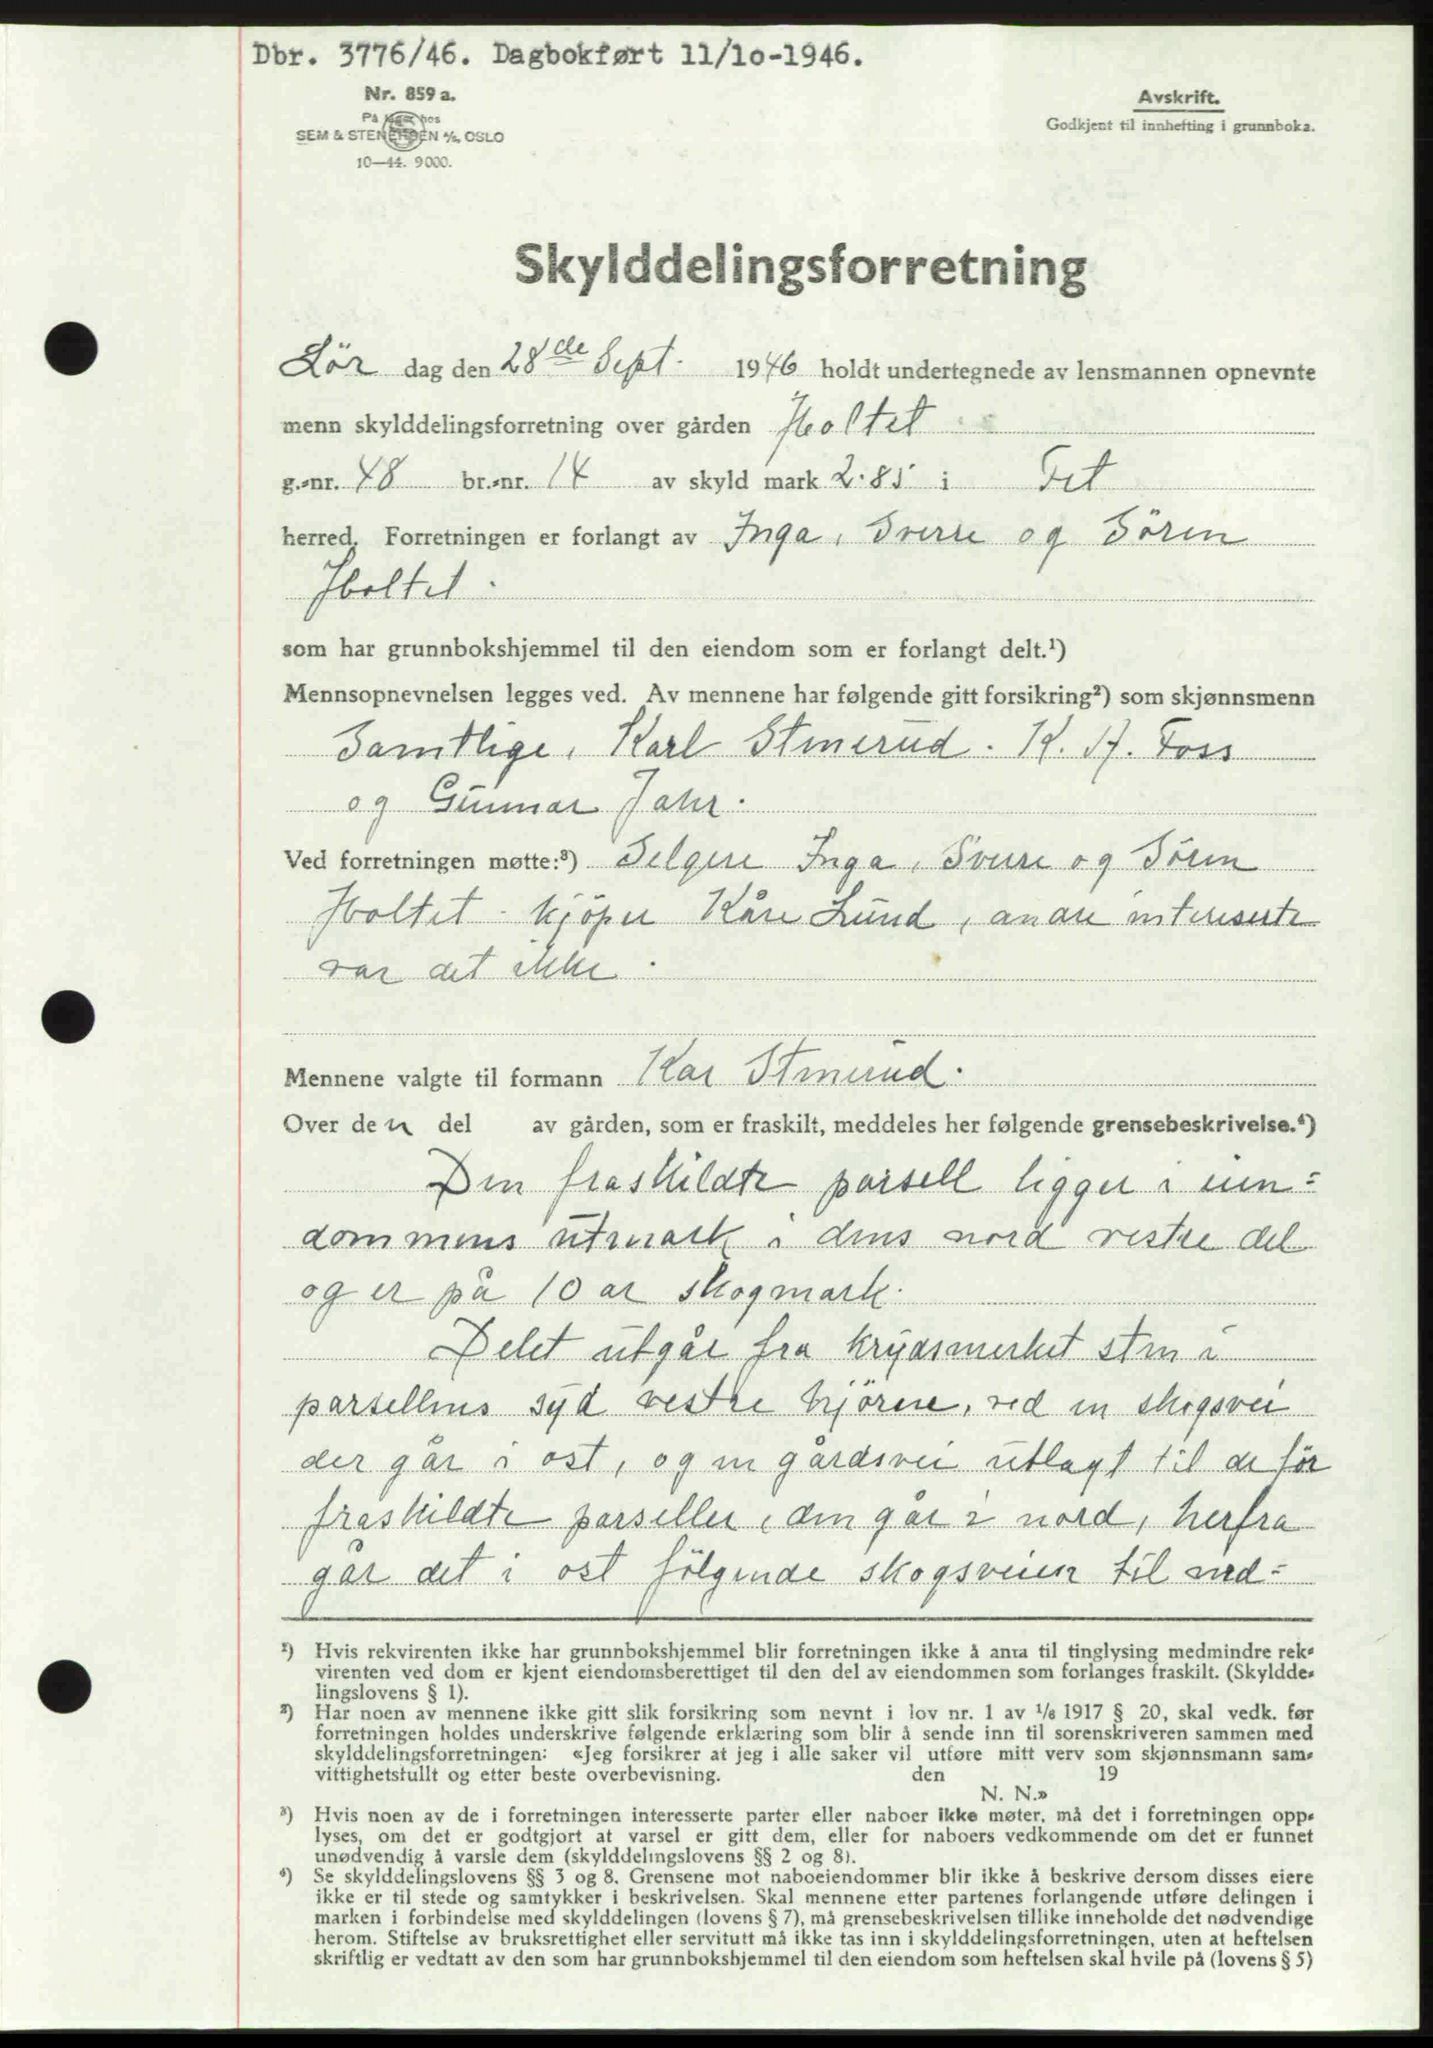 Dbr. 3776/46. Dagbokført 11/10-1946.
Nr. 859 a.
På lager hos
SEM & STENERSEN A/S, OSLO
10—44. 9000.
Avskrift.
Godkjent til innhefting i grunnboka.
Skylddelingsforretning
Lör dag den 28de Sept. 1946 holdt undertegnede av lensmannen opnevnte
menn skylddelingsforretning over gården Holtet
g.-nr. 48 br.-nr. 14 av skyld mark 2.85 i Fet
herred. Forretningen er forlangt av Inga, Sverre og Sören
Holtet.
som har grunnbokshjemmel til den eiendom som er forlangt delt.¹)
Mennsopnevnelsen legges ved. Av mennene har følgende gitt forsikring²) som skjønnsmenn
Samtlige, Karl Stenerud. K. A. Foss
og Gunnar Jahr.
Ved forretningen møtte:³) Selgere Inga, Sverre og Sören
Holtet - kjöper Kåre Lund, andre interesserte
var det ikke.
Mennene valgte til formann Kar Stenerud.
Over den del av gården, som er fraskilt, meddeles her følgende grensebeskrivelse.⁴)
Den fraskildte parsell ligger i eien=
dommens utmark i dens nord vestre del
og er på 10 ar skogmark.
Delet utgår fra krydsmerket sten i
parsellens syd vestre hjörne, ved en skogsvei
der går i ost, og en gårdsvei utlagt til de för
fraskildte parseller, den går i nord, herfra
går det i ost fölgende skogsveien til ned=
¹) Hvis rekvirenten ikke har grunnbokshjemmel blir forretningen ikke å anta til tinglysing medmindre rek-
virenten ved dom er kjent eiendomsberettiget til den del av eiendommen som forlanges fraskilt. (Skyldde-
lingslovens § 1).
²) Har noen av mennene ikke gitt slik forsikring som nevnt i lov nr. 1 av 1/6 1917 § 20, skal vedk. før
forretningen holdes underskrive følgende erklæring som blir å sende inn til sorenskriveren sammen med
skylddelingsforretningen: «Jeg forsikrer at jeg i alle saker vil utføre mitt verv som skjønnsmann sam-
vittighetsfullt og etter beste overbevisning. den 19
N. N.»
³) Hvis noen av de i forretningen interesserte parter eller naboer ikke møter, må det i forretningen opp-
lyses, om det er godtgjort at varsel er gitt dem, eller for naboers vedkommende om det er funnet
unødvendig å varsle dem (skylddelingslovens §§ 2 og 8).
⁴) Se skylddelingslovens §§ 3 og 8. Grensene mot naboeiendommer blir ikke å beskrive dersom disses eiere
ikke er til stede og samtykker i beskrivelsen. Skal mennene etter partenes forlangende utføre delingen i
marken i forbindelse med skylddelingen (lovens § 7), må grensebeskrivelsen tillike inneholde det nødvendige
herom. Stiftelse av bruksrettighet eller servitutt må ikke tas inn i skylddelingsforretningen, uten at heftelsen
skriftlig er vedtatt av den som har grunnbokshjemmel til den eiendom som heftelsen skal hvile på (lovens § 5)